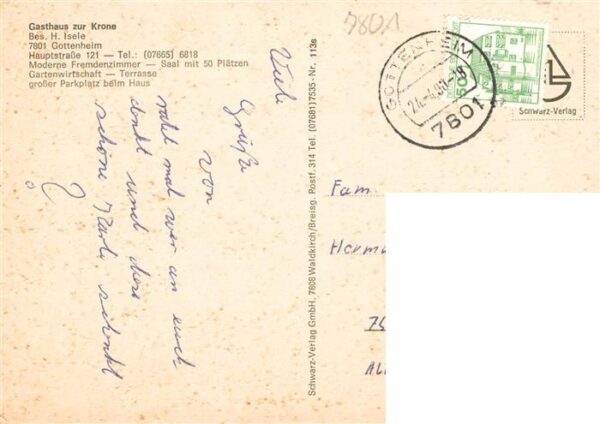 Gasthaus zur Krone
Bes. H. Isele
7801 Gottenheim
Hauptstraße 121 — Tel.: (07665) 6818
Moderne Fremdenzimmer — Saal mit 50 Plätzen
Gartenwirtschaft — Terrasse
großer Parkplatz beim Haus
Viele
Grüße
von
ratet mal wer an euch
denkt und diese
schöne Karte schickt
?
Schwarz-Verlag GmbH, 7808 Waldkirch/Breisg. Postf. 314 Tel. (07681) 7535 - Nr. 113s
7801
GOTTENHEIM
7801
50
Schwarz-Verlag
Fam.